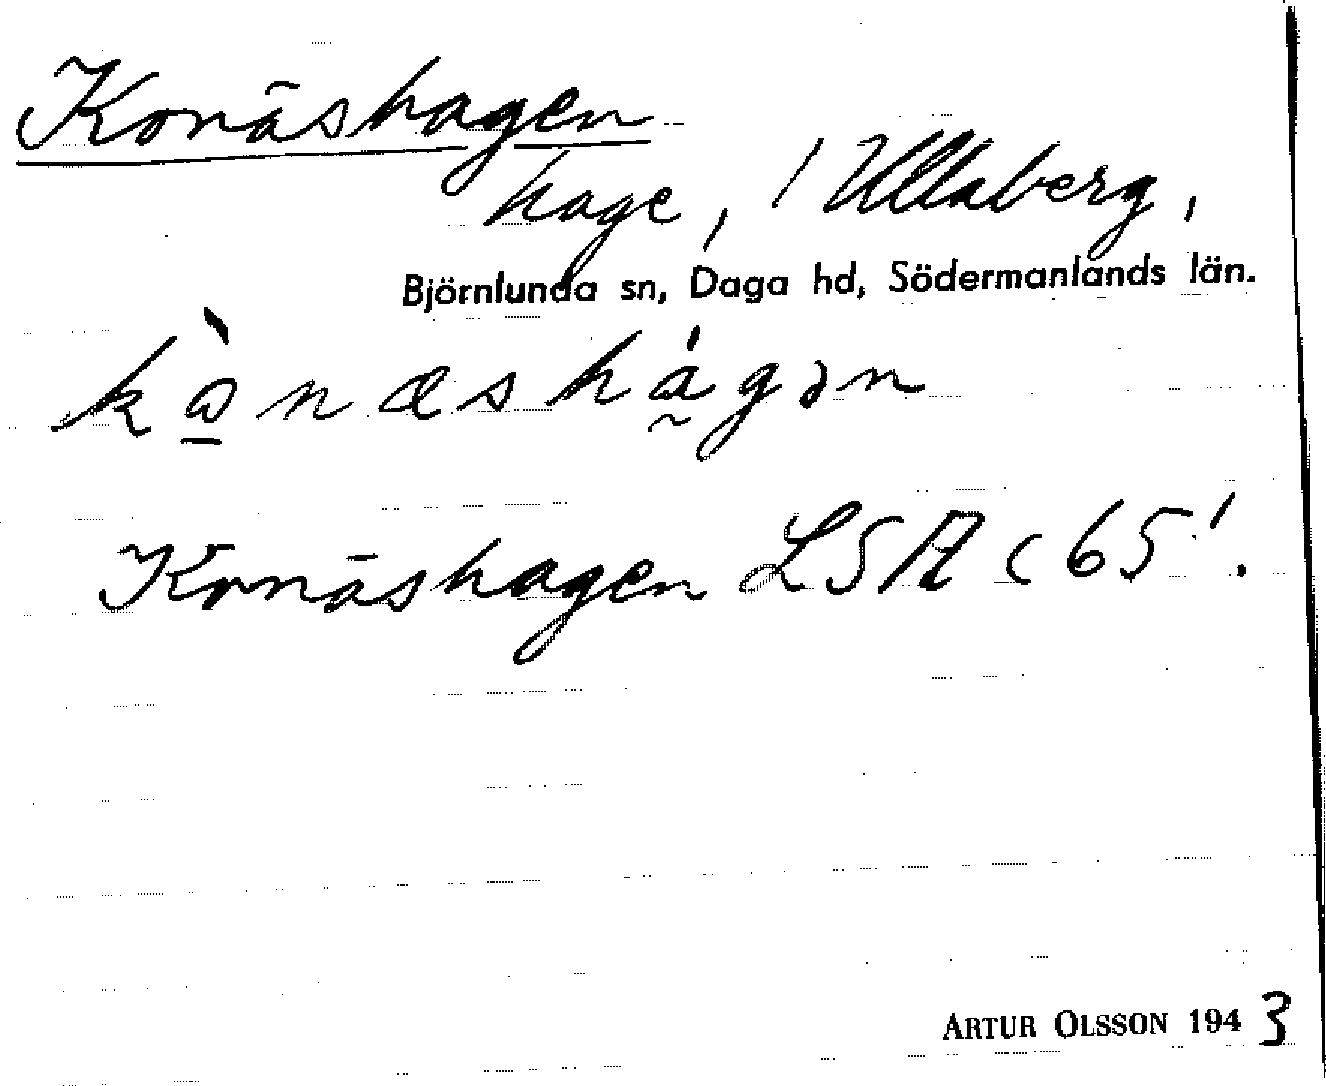 Konäshagen
hage, / Ullaberg,
Björnlunda sn, Daga hd, Södermanlands län.
kò̱næshá̰gən
Konäshagen LSA c 65'.
ARTUR OLSSON 1943